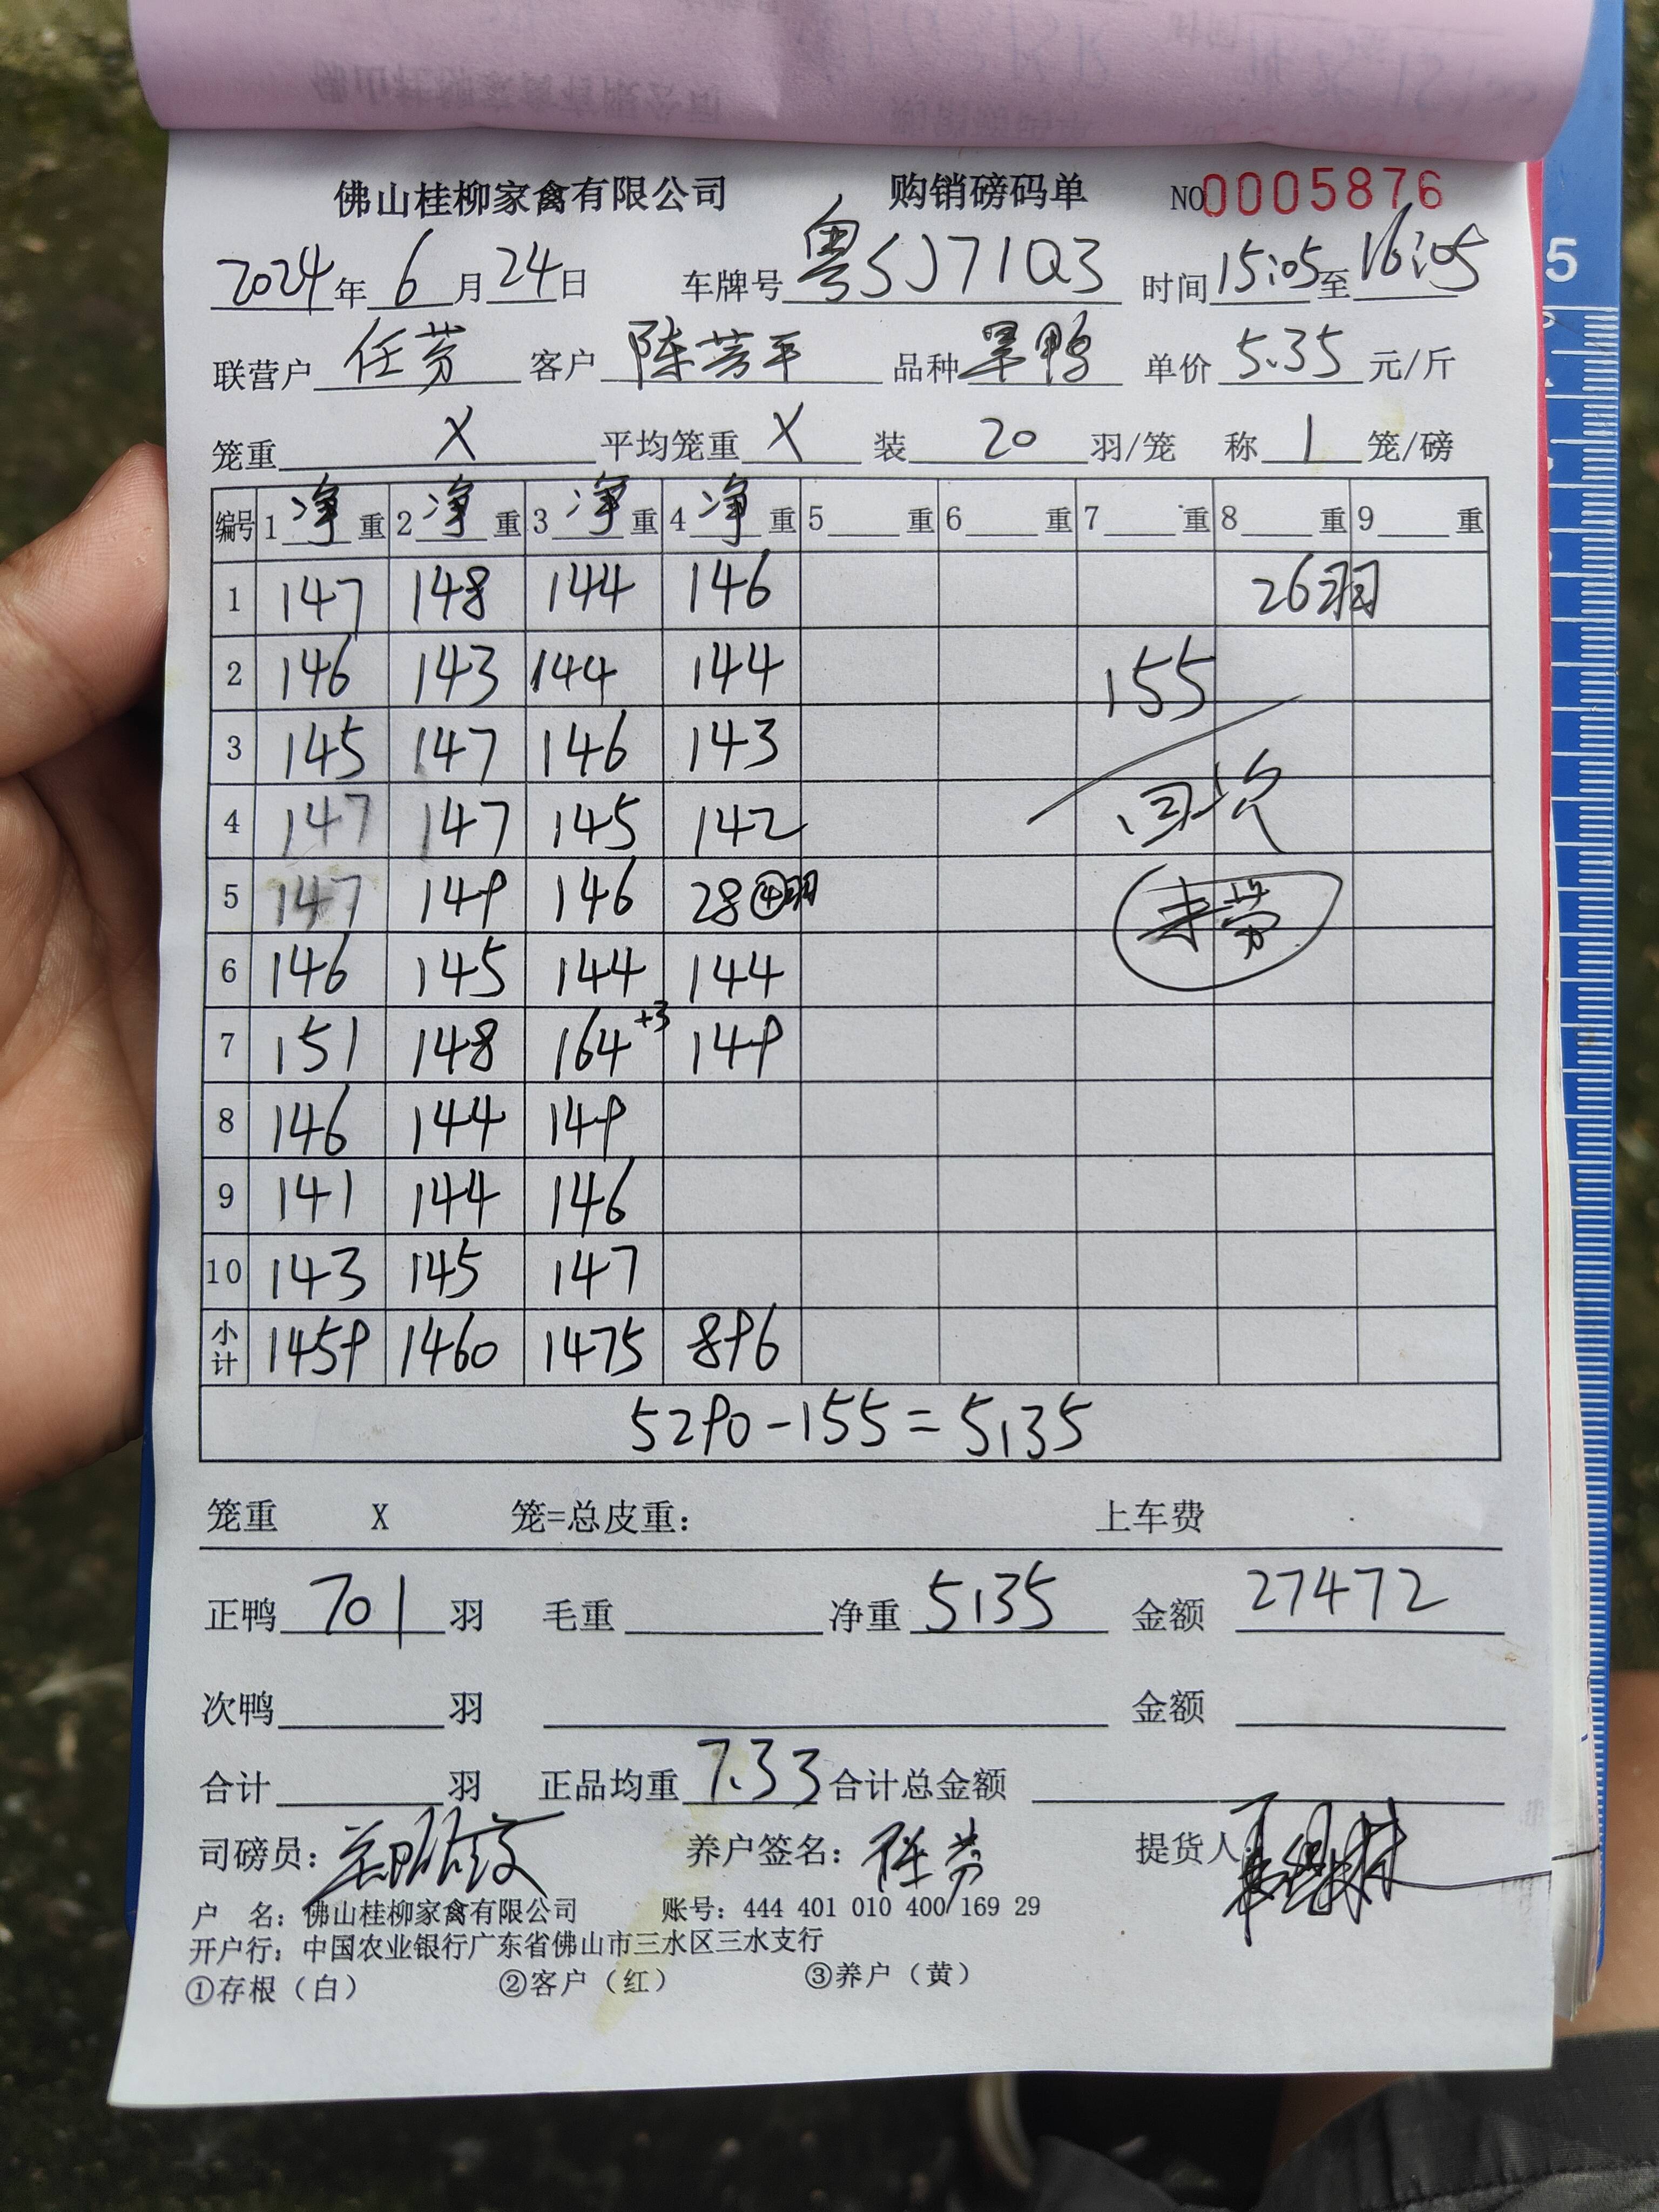 佛山桂柳家禽有限公司 购销磅码单 NO 0005876
2024年6月24日 车牌号 粤SJ71Q3 时间 15:05至16:05
联营户 任芬 客户 陈芳平 品种 旱鸭 单价 5.35 元/斤
笼重 X 平均笼重 X 装 20 羽/笼 称 1 笼/磅
编号 1 净 重 2 净 重 3 净 重 4 净 重 5 重 6 重 7 重 8 重 9 重
1 147 148 144 146 26羽
2 146 143 144 144 155
3 145 147 146 143
4 147 147 145 142 回次
5 147 149 146 28 ④羽
6 146 145 144 144
7 151 148 164 +3 149
8 146 144 149
9 141 144 146
10 143 145 147
小计 1459 1460 1475 896
5290-155=5135
笼重 X 笼=总皮重: 上车费
正鸭 701 羽 毛重 净重 5135 金额 27472
次鸭 羽 金额
合计 羽 正品均重 7.33 合计总金额
司磅员: 养户签名: 任芬 提货人:
户 名: 佛山桂柳家禽有限公司 账号: 444 401 010 400 169 29
开户行: 中国农业银行广东省佛山市三水区三水支行
①存根（白） ②客户（红） ③养户（黄）
5